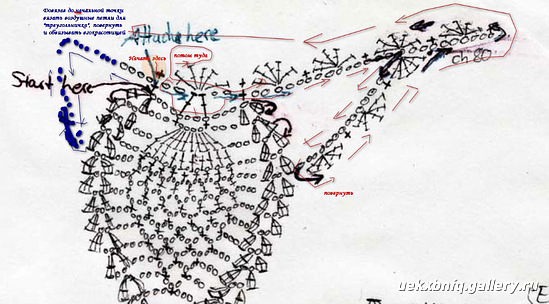 Довязав до начальной точки
вязать воздушные петли для
"треугольничка", повернуть
и обвязывать его красотищей
Attach here
Начать здесь
потом туда
Start here
ch 80
повернуть
uek.xbnfq.gallery.ru
(E